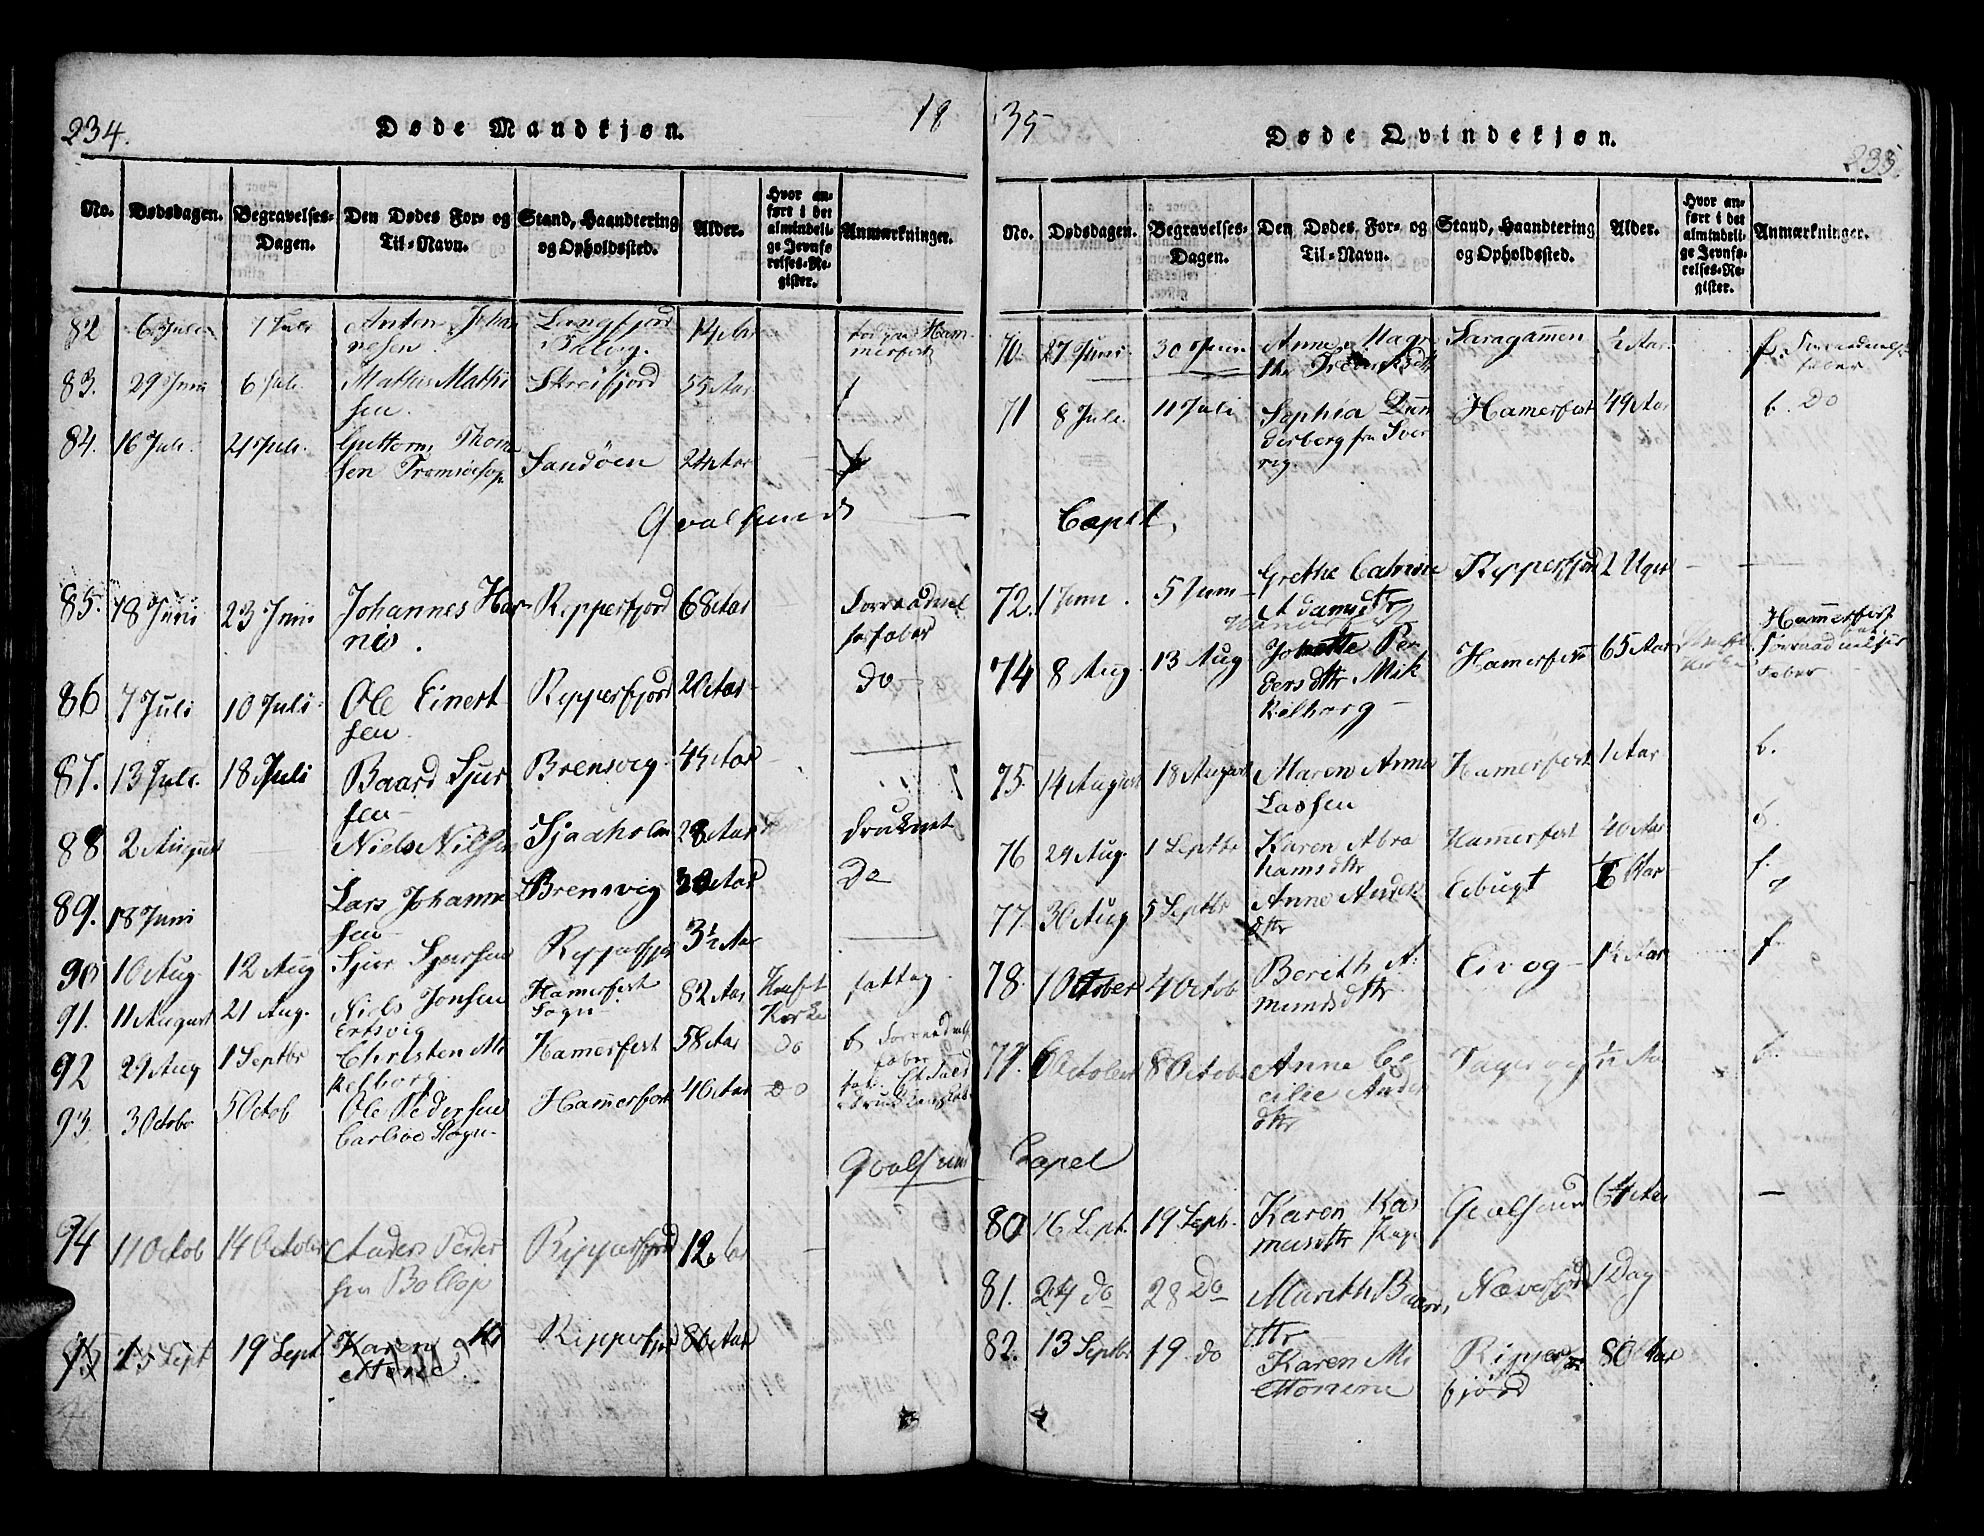 234.
Døde Mandkjøn.
18
No.
Dødsdagen.
Begravelses-
Dagen.
Den Dødes For- og
Til-Navn.
Stand, Haandtering
og Opholdssted.
Alder.
Hvor an-
ført i det
almindeli-
ge Jevnfø-
relses-Re-
gister.
Anmærkninger.
82 6 Juli 7 Juli Anton Johan
nesen. Langfjord
Talvig. 14 Aar Ham-
merfest
83. 29 Juni 6 Juli Mathis Mathi
sen. Skreifjord 55 Aar f
84. 16 Juli. 21 Juli. Guttorm Thom
sen Tromsøesogn Sandøen 24 Aar
Qvalsund
85. 18 Juni 23 Juni Johannes Har-
nis. Ripperfjord 68 Aar Forraadnel
ses feber
86 7 Juli 10 Juli Ole Einert
sen. Ripperfjord 20 Aar Do
87. 13 Juli. 18 Juli Baard Sjur
sen Brensvig 45 Aar
88 2 August Niels Nilsen Sjaaholm 28 Aar druknet
89. 18 Juni Lars Johanne
sen Brensvig Aar Do
90 10 Aug. 12 Aug Sjur Sjursen Ripperfjor 3½ Aar
91. 11 August 21 Aug. Niels Jonsen
Ertsvig Hamerfest
Sogn 82 Aar Hovet
Kirke fattig
92 29 Aug 1 Septbr Christen Mi
kelborg Hamerfest 58 Aar Do b Forraadnelse
feber
93. 3 Octobr 5 Octob Ole Pedersen
Carlsøe Sogn Hamerfest 40 Aar Do
Qvalsund
94 11 Octob 14 October Anders Peder
sen Bollop Ripperfjord 12 Aar
95 15 Sept 19 Sept Karen Ripperfjord 80 Aar
35
Døde Qvindekjøn.
235.
No.
Dødsdagen.
Begravelses-
Dagen.
Den Dødes For- og
Til-Navn.
Stand, Haandtering
og Opholdssted.
Alder.
Hvor an-
ført i det
almindeli-
ge Jevnfø-
relses-Re-
gister.
Anmærkninger.
70. 27 Juni 30 Juni Anne Magre
the Saragammen ½ Aar f. Forraadnelse
feber
71 8 Juli. 11 Juli Sophia Dun
derberg fra Sver
rig. Hamerfest 49 Aar b. Do
Capel.
72. 1 Juni. 5 Juni Grethe Catrine
Adamsdtr Ripperfjord 2 Uger
74 8 Aug. 13 Aug Johette Pe
dersdtr Mik
kelborg Hamerfest 65 Aar Kirke Hammerfest
Forraadnelses
Feber
75. 14 August 18 August Maren Anne
Lassen Hamerfest 1 Aar b.
76 29 Aug. 1 Septbr Karen Abra
hamsdtr Hamerfest 40 Aar b.
77. 30 Aug 5 Septbr Anne Anders
dtr Eibugt Aar f.
78. 1 October 4 Octob Berith A
mundsdtr Eivog 1½ Aar f.
79. October 8 Octob Anne Ce
cilie Ander
dtr ½ Aar b.
Capel
80 16 Sept. 19 Septr. Karen Ras
musdtr Qvalsund 64 Aar
81. 24 do 28 Do Marith Baards
dtr Næverfjord 1 Dag
82. 13 Septbr 19 do Karen Mi Ripper
fjord 80 Aar